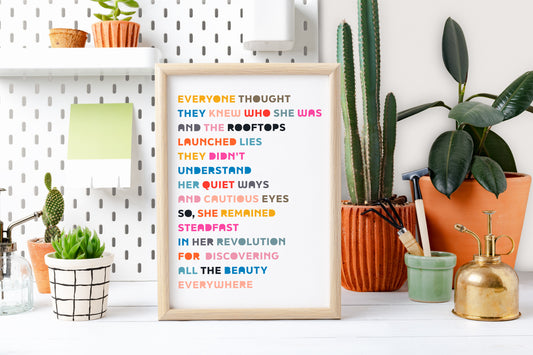 EVERYONE THOUGHT
THEY KNEW WHO SHE WAS
AND THE ROOFTOPS
LAUNCHED LIES
THEY DIDN'T
UNDERSTAND
HER QUIET WAYS
AND CAUTIOUS EYES
SO, SHE REMAINED
STEADFAST
IN HER REVOLUTION
FOR DISCOVERING
ALL THE BEAUTY
EVERYWHERE